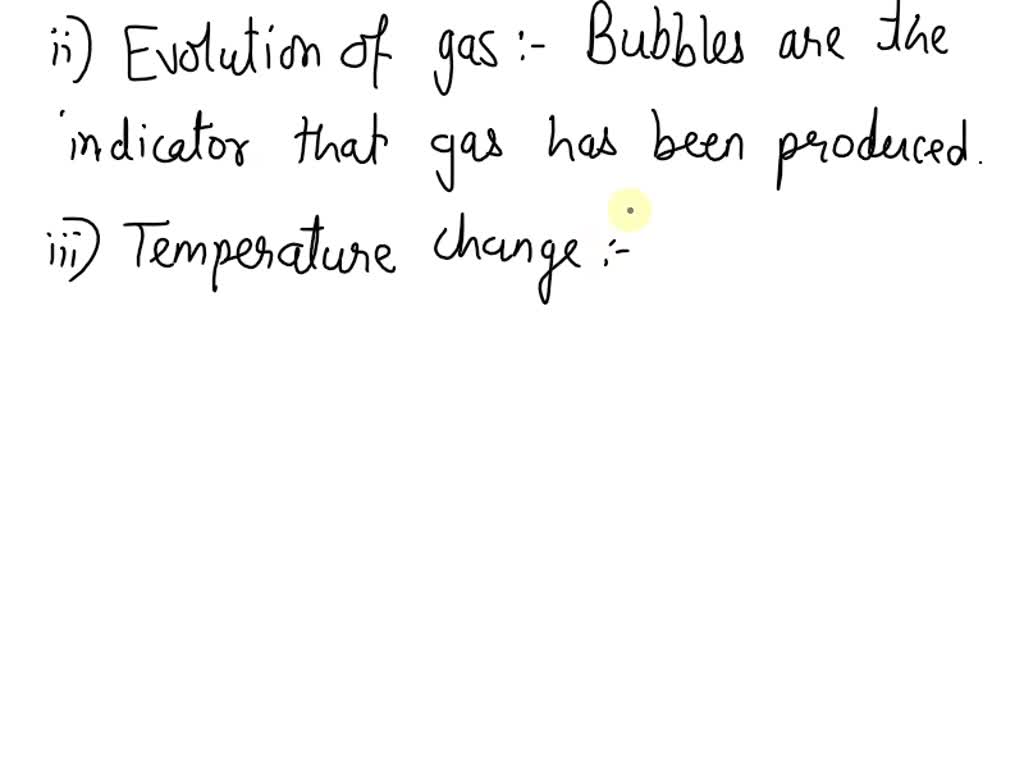 ii) Evolution of gas :- Bubbles are the
indicator that gas has been produced.
iii) Temperature change :-